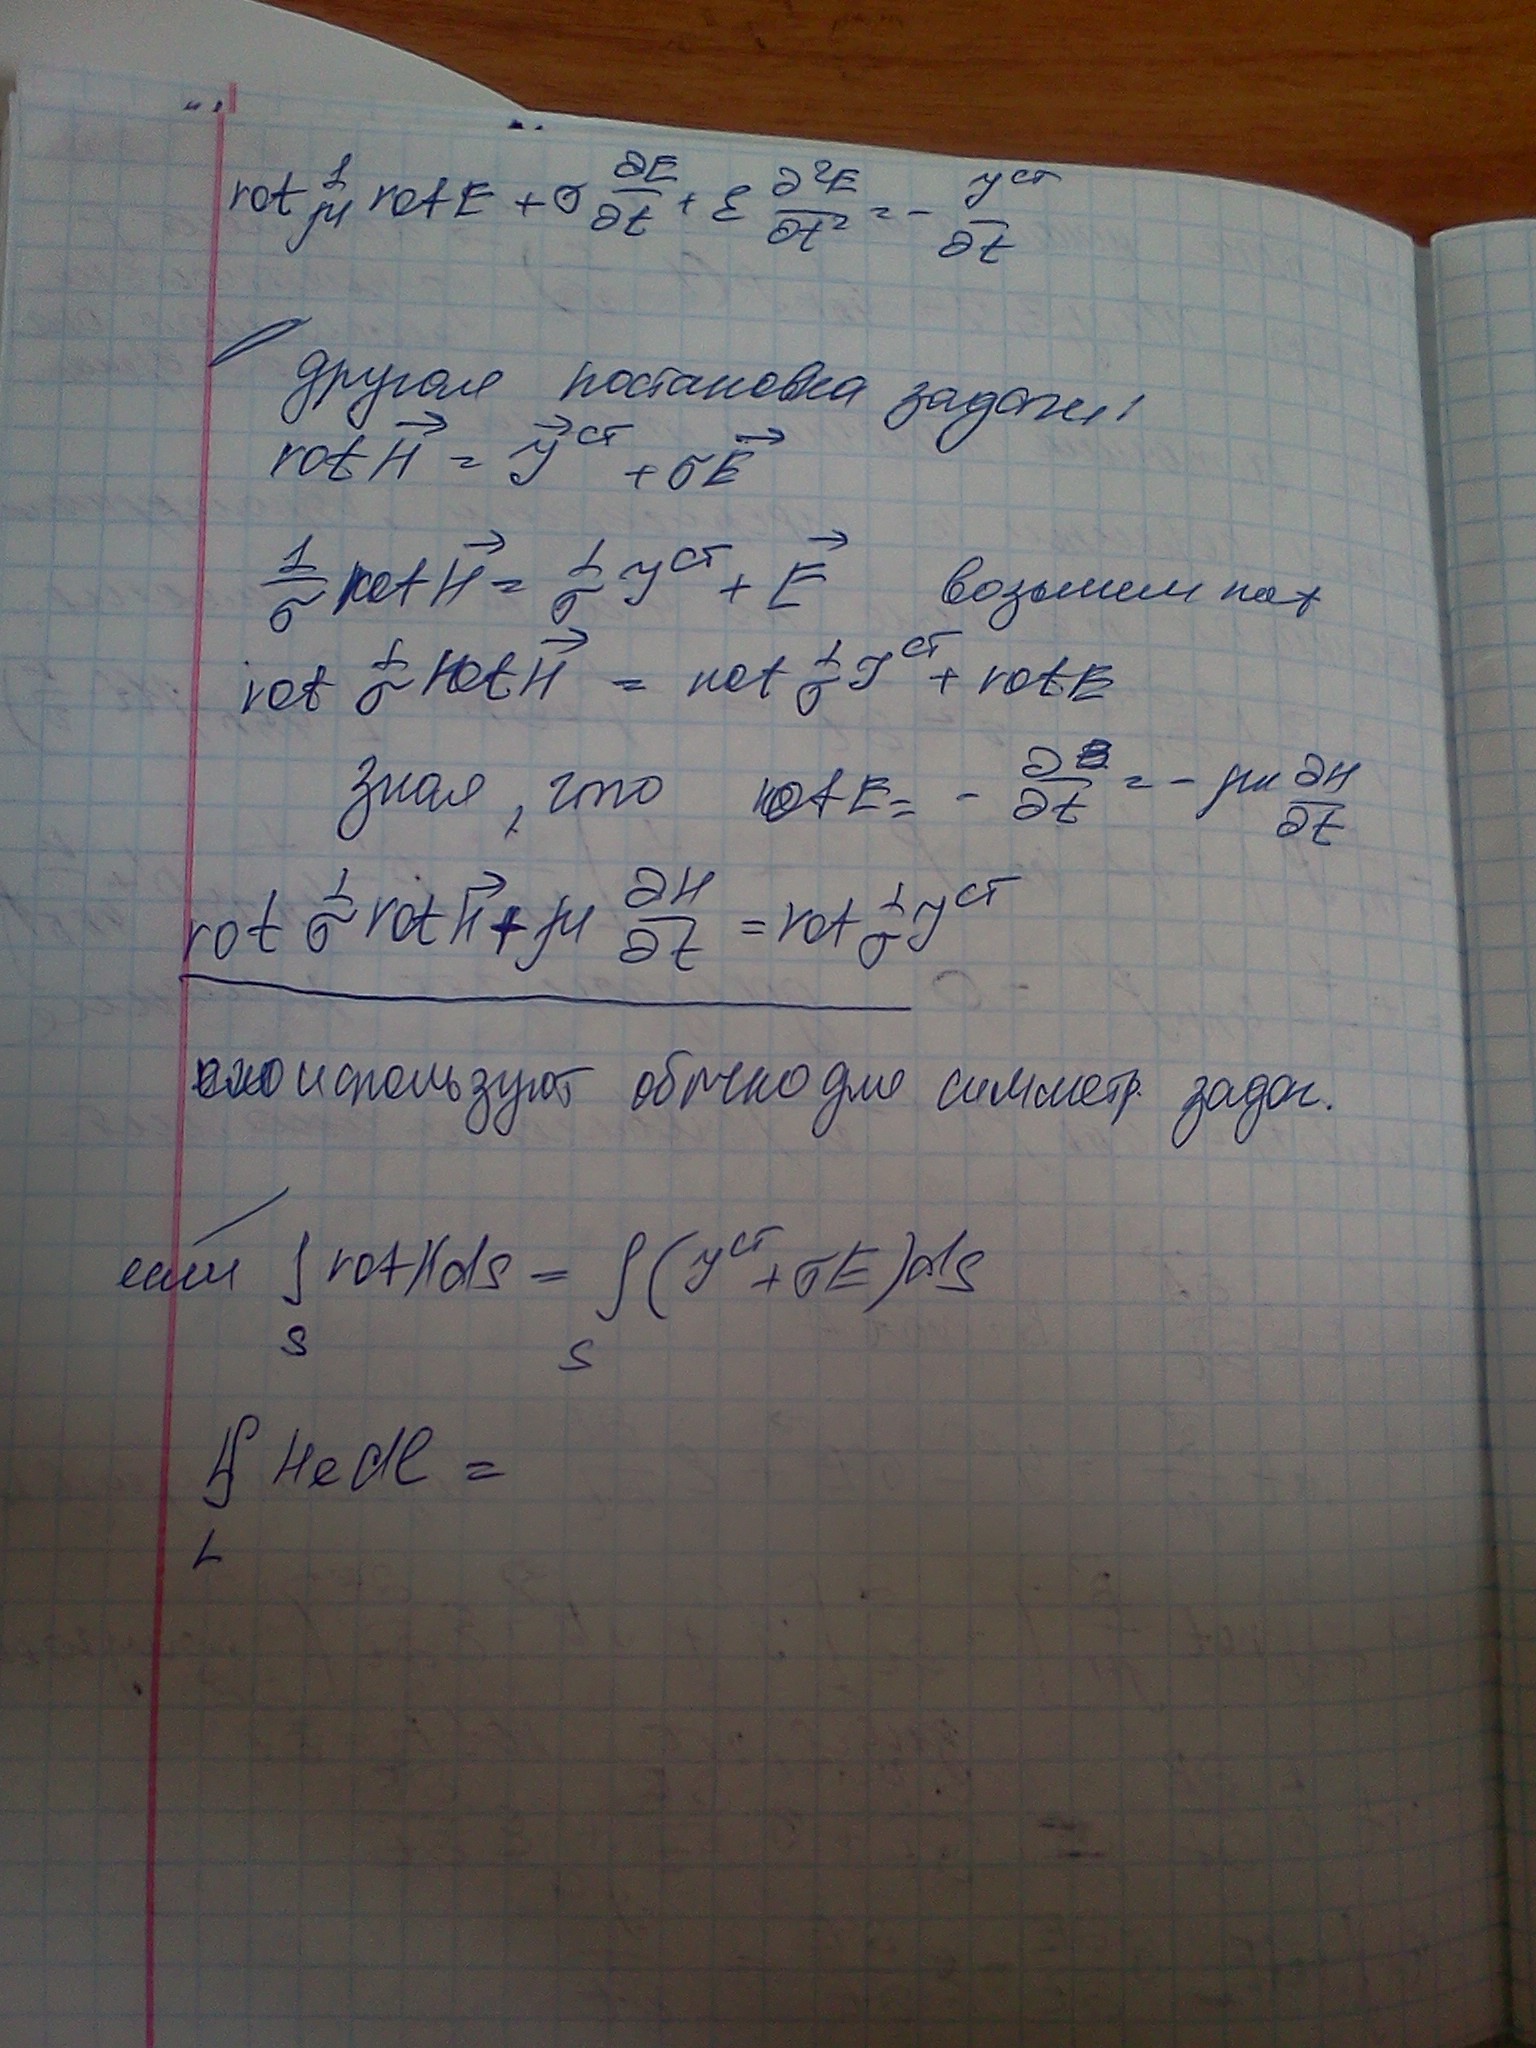 rot 1/μ rot E + σ ∂E/∂t + ε ∂²E/∂t² = - J^ст/∂t
другая постановка задачи:
rot H⃗ = J⃗^ст + σE⃗
1/σ rot H⃗ = 1/σ J^ст + E⃗ возьмем rot
rot 1/σ rot H⃗ = rot 1/σ J^ст + rot E
Зная, что rot E = - ∂B/∂t = - μ ∂H/∂t
rot 1/σ rot H⃗ + μ ∂H/∂t = rot 1/σ J^ст
используют обычно для симметр. задач.
если ∫_S rot H ds = ∫_S (J^ст + σE) ds
∮_L He dl =